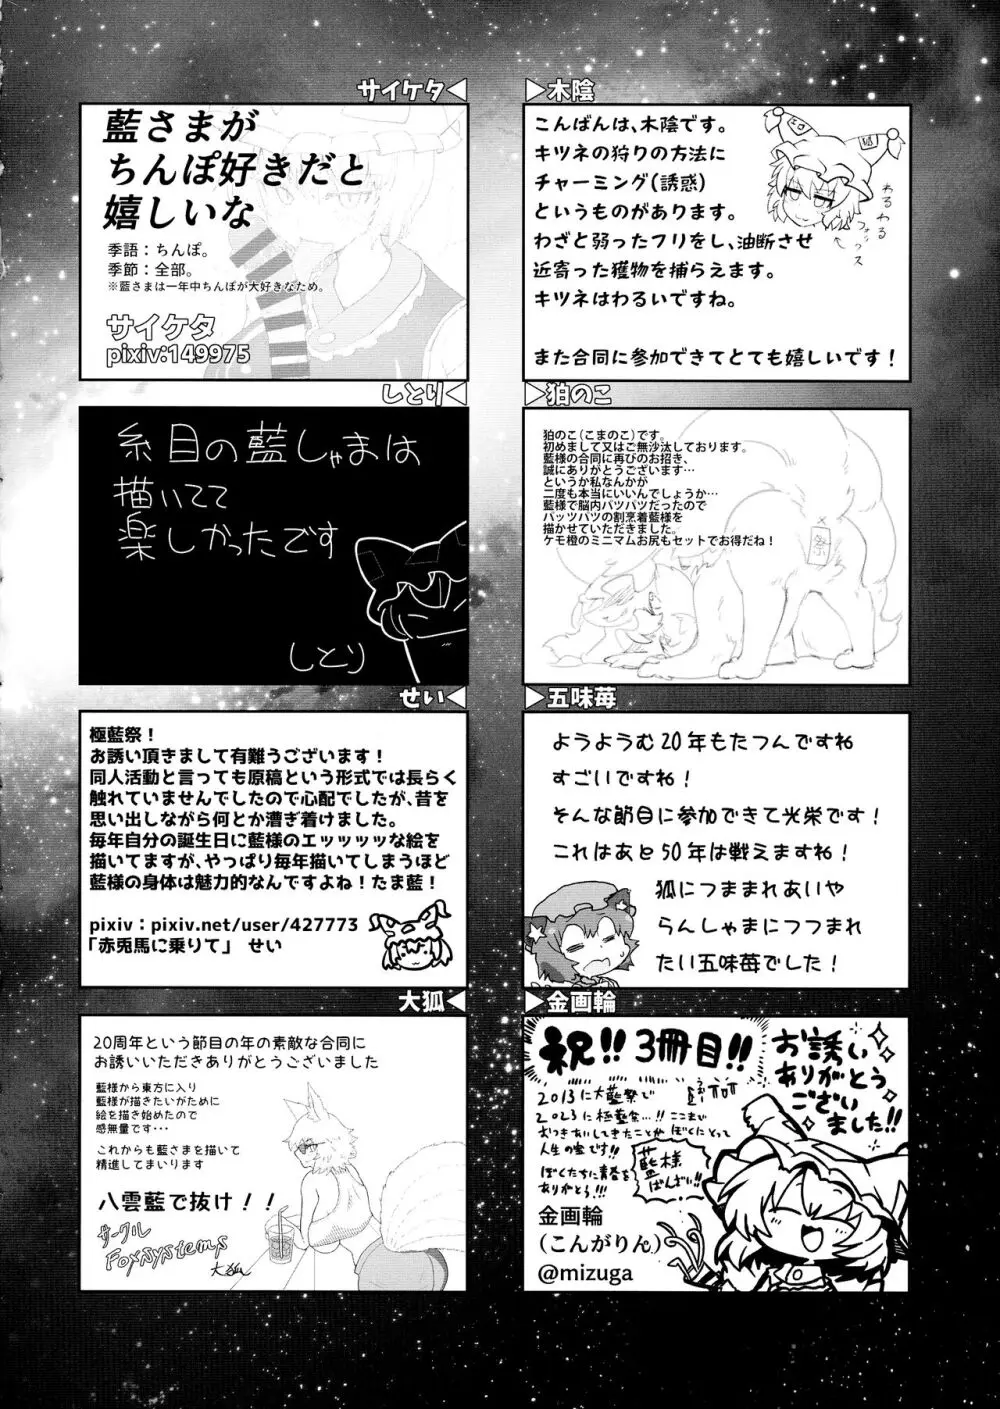 サイケタ◀
藍さまが
ちんぽ好きだと
嬉しいな
季語：ちんぽ。
季節：全部。
※藍さまは一年中ちんぽが大好きなため。
サイケタ
pixiv:149975
▷木陰
こんばんは、木陰です。
キツネの狩りの方法に
チャーミング(誘惑)
というものがあります。
わざと弱ったフリをし、油断させ
近寄った獲物を捕らえます。
キツネはわるいですね。
また合同に参加できてとても嬉しいです！
わるわる
フォックス
しとり◀
糸目の藍しゃまは
描いてて
楽しかったです
しとり
▷狛のこ
狛のこ（こまのこ）です。
初めまして又はご無沙汰しております。
藍様の合同に再びのお招き、
誠にありがとうございます…
というか私なんかが
二度も本当にいいんでしょうか…
藍様で脳内パツパツだったので
パッツパツの割烹着藍様を
描かせていただきました。
ケモ橙のミニマムお尻もセットでお得だね！
祭
せい◀
極藍祭！
お誘い頂きまして有難うございます！
同人活動と言っても原稿という形式では長らく
触れていませんでしたので心配でしたが、昔を
思い出しながら何とか漕ぎ着けました。
毎年自分の誕生日に藍様のエッッッッな絵を
描いてますが、やっぱり毎年描いてしまうほど
藍様の身体は魅力的なんですよね！たま藍！
pixiv：pixiv.net/user/427773
「赤兎馬に乗りて」　せい
▷五味苺
ようようむ20年もたつんですね
すごいですね！
そんな節目に参加できて光栄です！
これはあと50年は戦えますね！
狐につままれあいや
らんしゃまにつつまれ
たい五味苺でした！
大狐◀
20周年という節目の年の素敵な合同に
お誘いいただきありがとうございました
藍様から東方に入り
藍様が描きたいがために
絵を描き始めたので
感無量です…
これからも藍さまを描いて
精進してまいります
八雲藍で抜け！！
サークル
Foxsystems
大狐
▷金画輪
祝!!3冊目!!
お誘い
ありがとう
ござい
ました!!
2013に大藍祭で
2023に極藍祭…!!ここまで
おつきあいしてきたことがぼくにとって
人生の宝です!!
ぼくたちに青春を
ありがとう!!!
藍様
ばんざい!!
金画輪
（こんがりん）
@mizuga